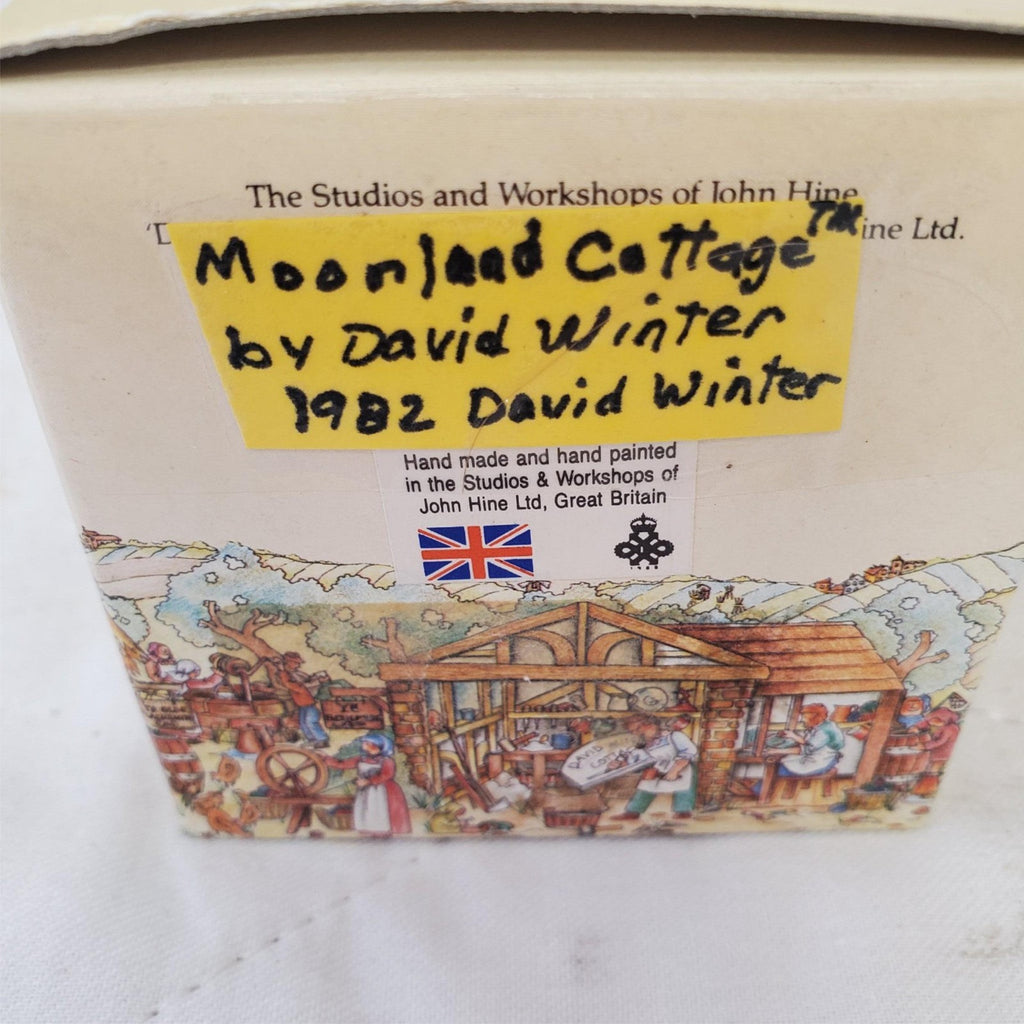 The Studios and Workshops of John Hine
'D ine Ltd.
Moonland Cottage™
by David Winter
1982 David Winter
Hand made and hand painted
in the Studios & Workshops of
John Hine Ltd, Great Britain
DAVID